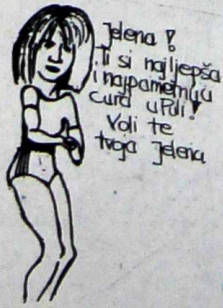 Jelena!
Ti si najljepša
i najpametnija
cura u Puli!
Voli te
tvoja Jelena